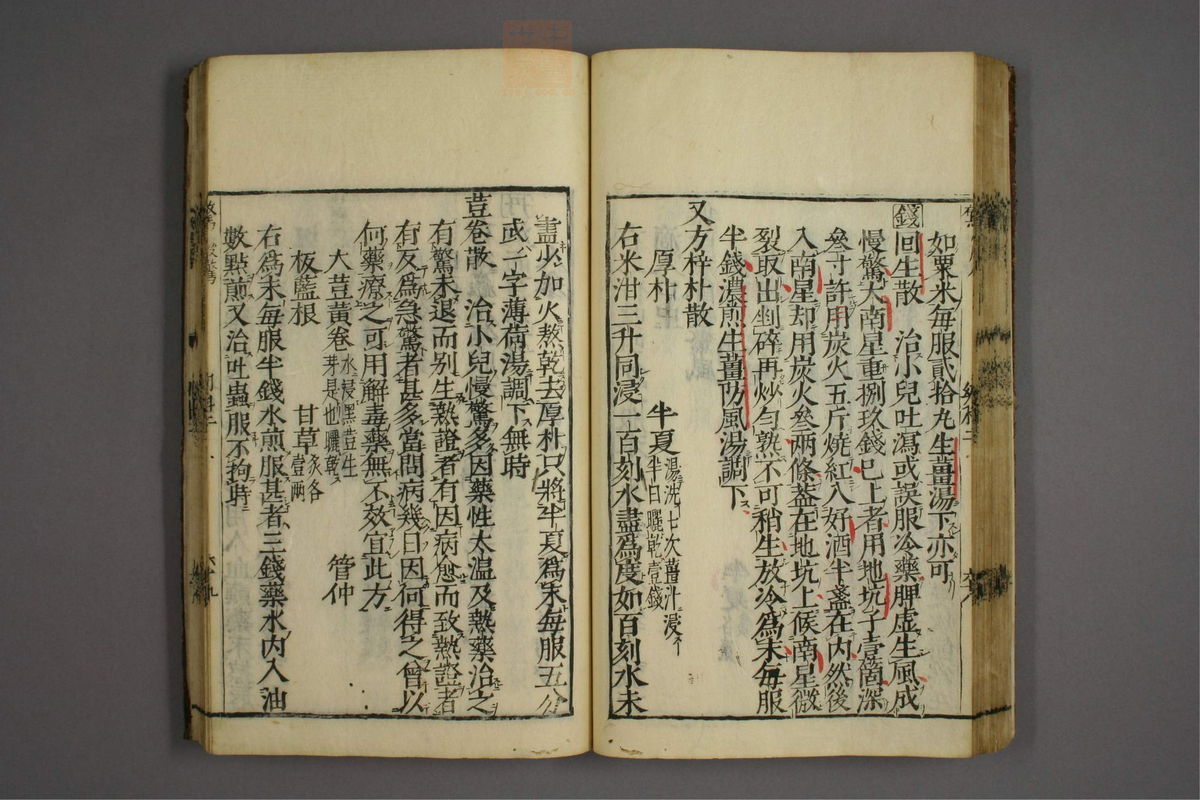 如粟米毎服貳拾丸生薑湯下亦可
錢回生散 治小兒吐瀉或誤服冷藥脾虛生風成
慢驚大南星重捌玖錢已上者用地坑子壹箇深
叄寸許用炭火五斤燒紅入好酒半盞在内然後
入南星却用炭火叄兩條盖在地坑上候南星微
裂取出剉碎再炒勻熟不可稍生放冷爲末毎服
半錢濃煎生薑防風湯調下
又方梓朴散
厚朴 半夏湯洗七次薑汁浸半日曬乾壹錢
右米泔三升同浸一百刻水盡爲度如百刻水未
盡少加火熬乾去厚朴只將半夏爲末毎服五分
或一字薄荷湯調下無時
荳卷散 治小兒慢驚多因藥性太温及熱藥治之
有驚未退而别生熱證者有因病愈而致熱證者
有反爲急驚者甚多當問病幾日因何得之曾以
何藥療之可用解毒藥無不效宜此方
大荳黃卷水浸黑荳生芽是也曬乾 管仲
板藍根 甘草炙各壹兩
右爲末毎服半錢水煎服甚者三錢藥水内入油
數點煎又治吐蟲服不拘時